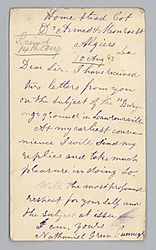 Home Stead Cot
Algiers
La
10 Aug
Dear Sir. I have received
two letters from you
on the subject of the "Bury-
ing ground in
At my earliest conven-
ience I will send my
replies and take much
pleasure in doing so.
With the most profound
respect for yourself and
the subject at issue
I am, yours
Nathaniel Green